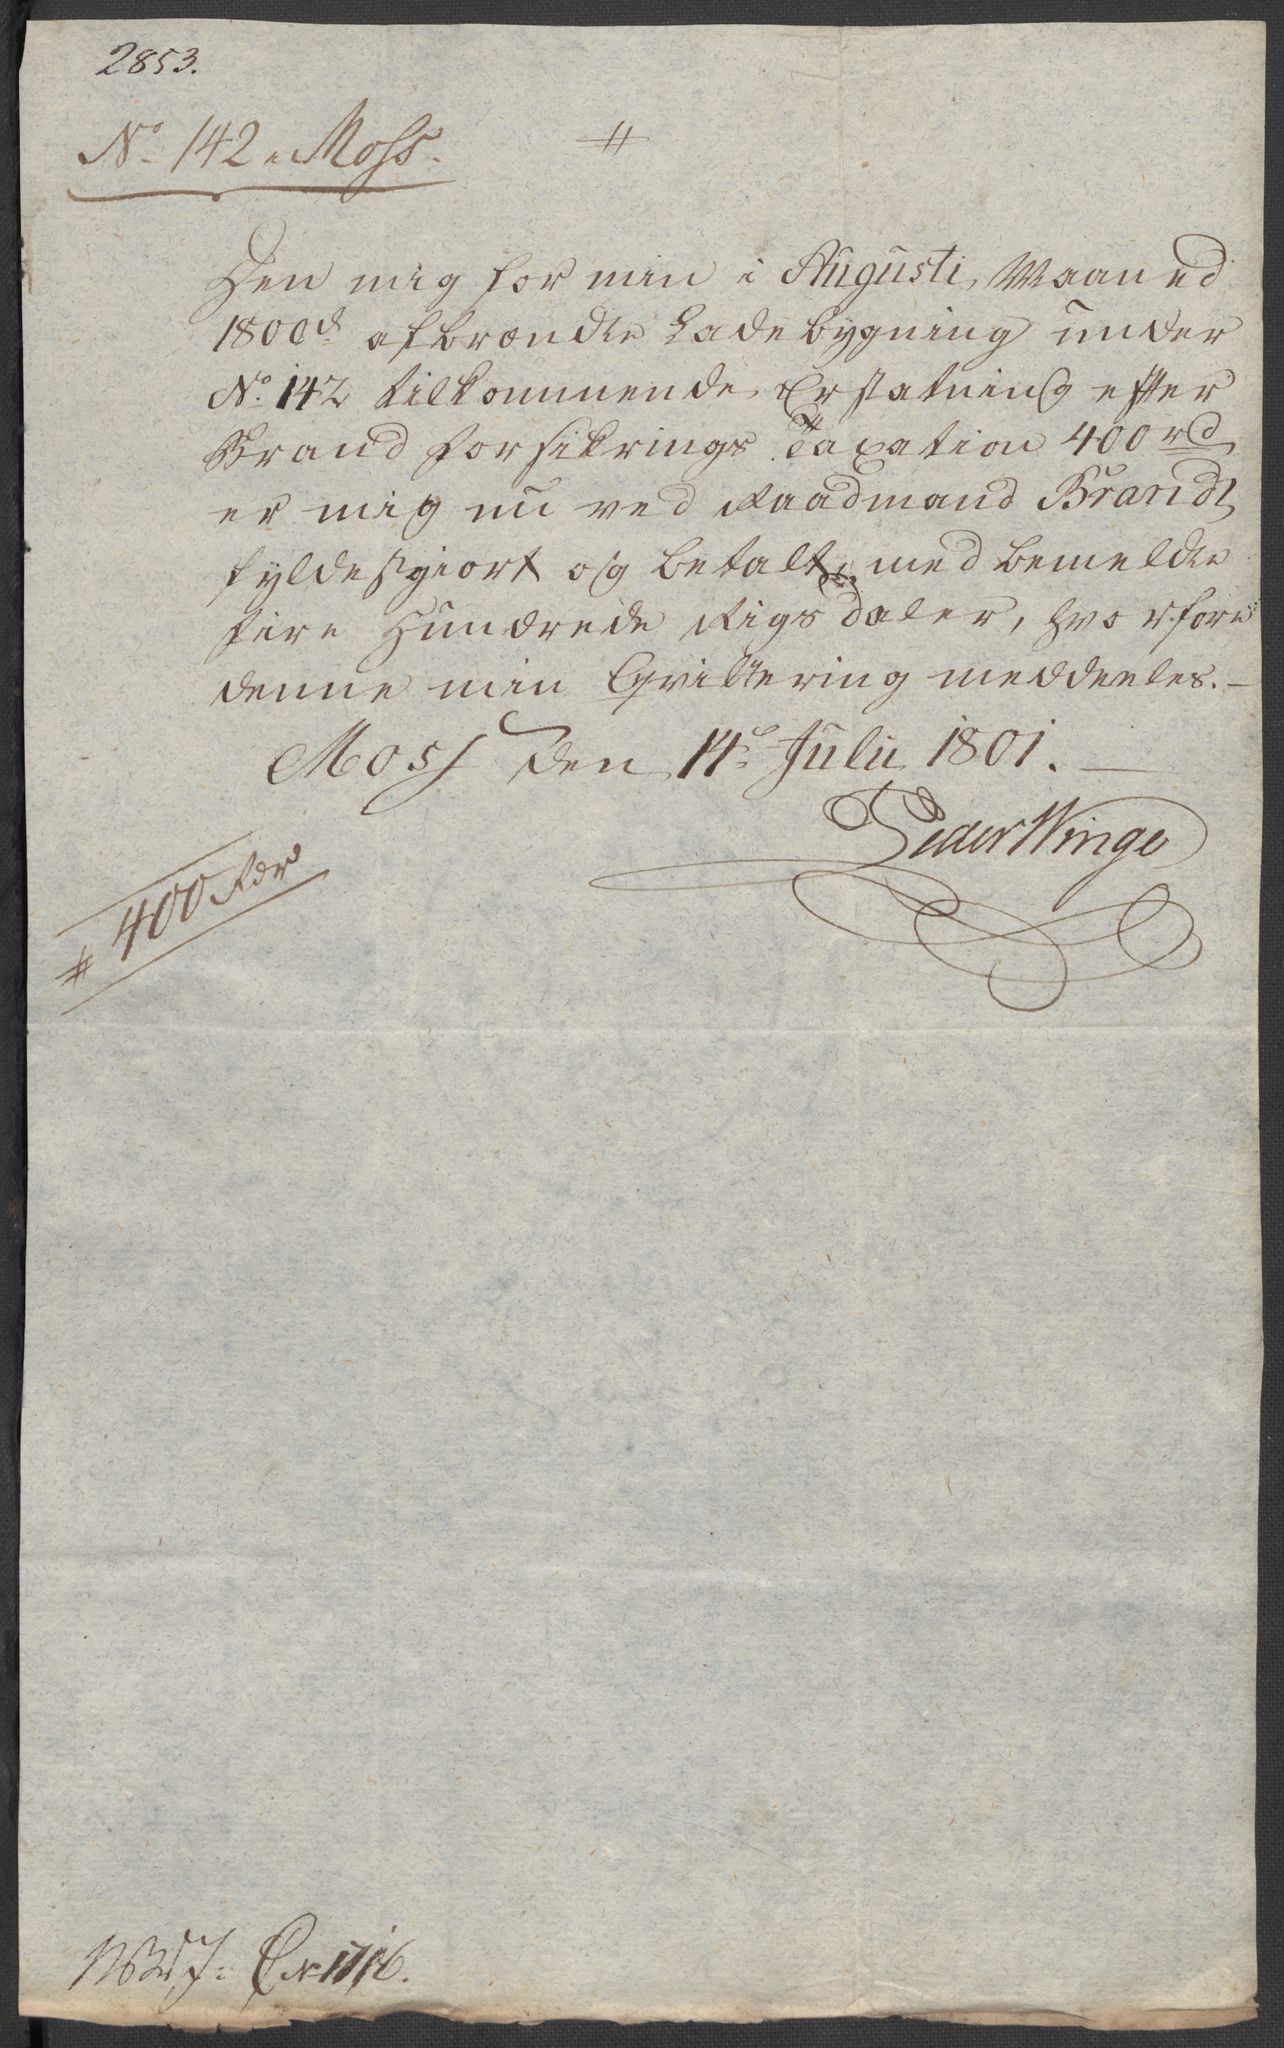 2853.
No. 142. Moss.
Den mig for min i Augusti Maaned
1800 afbrændte Ladebygning under
No. 142 tilkommende Erstatning efter
Brand forsikrings Taxation 400 rd
er mig nu ved Raadmand Brandt
fyldestgiort og betalt med bemeldte
fire Hundrede Rigsdaler, hvorfore
denne min Qvittering meddeeles. –
Moss den 14de Julii 1801. –
Peder Winge
400 Rdr